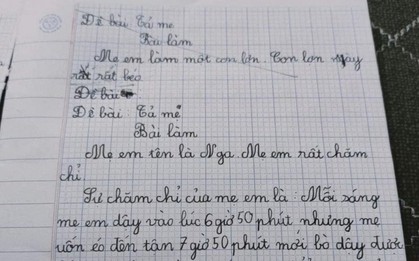 Đề bài Tả mẹ
Bài làm
Mẹ em làm một con lợn. Con lợn này
rất rất béo
Đề bài
Đề bài: Tả mẹ
Bài làm
Mẹ em tên là Nga. Mẹ em rất chăm
chỉ.
Sự chăm chỉ của mẹ em là: Mỗi sáng
mẹ em dậy vào lúc 6 giờ 50 phút nhưng mẹ
uốn éo đến tận 7 giờ 50 phút mới bò dậy được